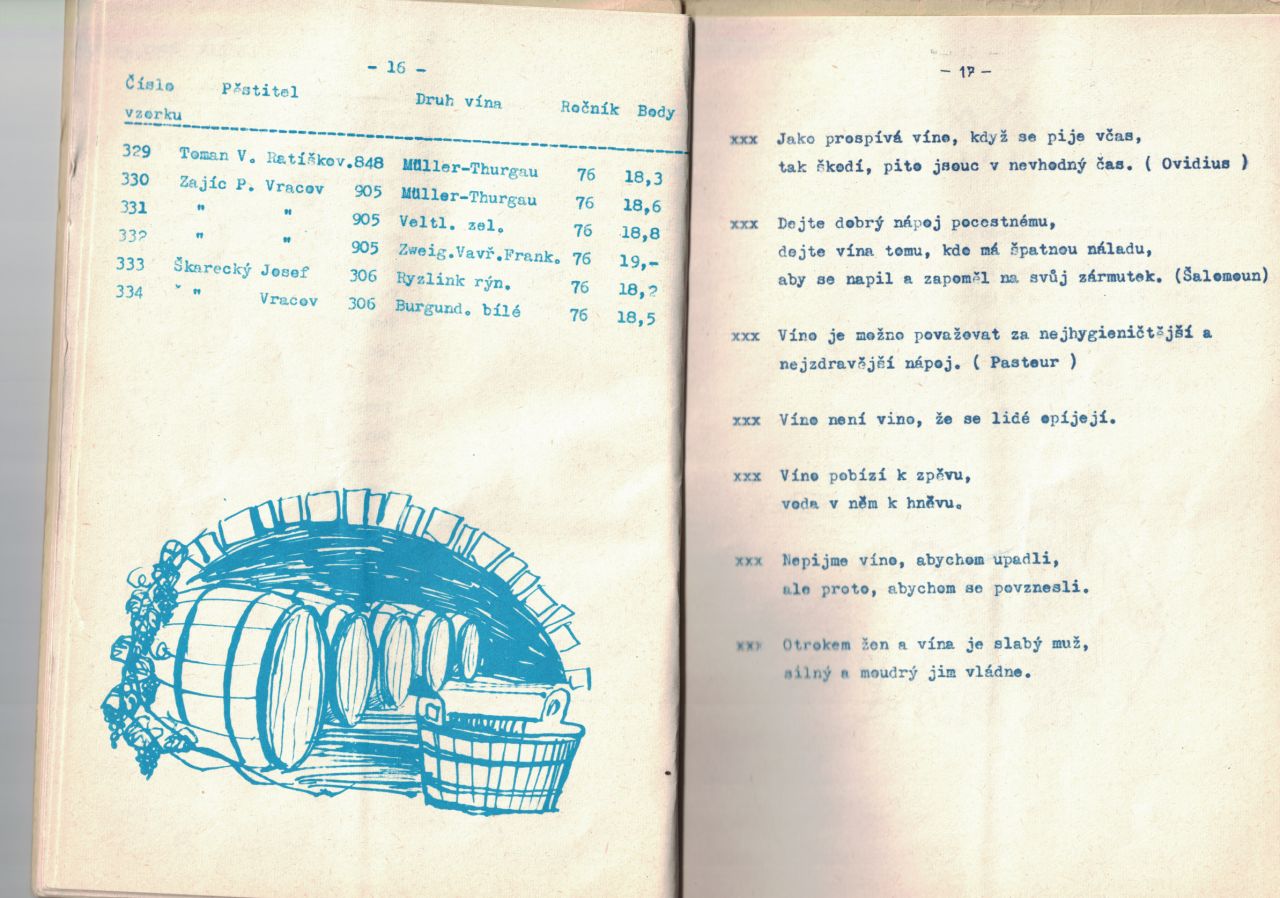 - 16 -
Číslo Pěstitel Druh vína Ročník Body
vzorku
329 Toman V. Ratíškov.848 Müller-Thurgau 76 18,3
330 Zajíc P. Vracov 905 Müller-Thurgau 76 18,6
331 " " 905 Veltl. zel. 76 18,8
332 " " 905 Zweig.Vavř.Frank. 76 19,-
333 Škarecký Josef 306 Ryzlink rýn. 76 18,2
334 " Vracov 306 Burgund. bílé 76 18,5
- 17 -
xxx Jako prospívá víno, když se pije včas,
tak škodí, pito jsouc v nevhodný čas. ( Ovidius )
xxx Dejte dobrý nápoj pocestnému,
dejte vína tomu, kdo má špatnou náladu,
aby se napil a zapoměl na svůj zármutek. (Šalomoun)
xxx Víno je možno považovat za nejhygieničtější a
nejzdravější nápoj. ( Pasteur )
xxx Víno není vino, že se lidé opíjejí.
xxx Víno pobízí k zpěvu,
voda v něm k hněvu.
xxx Nepijme víno, abychom upadli,
ale proto, abychom se povznesli.
xxx Otrokem žen a vína je slabý muž,
silný a moudrý jim vládne.